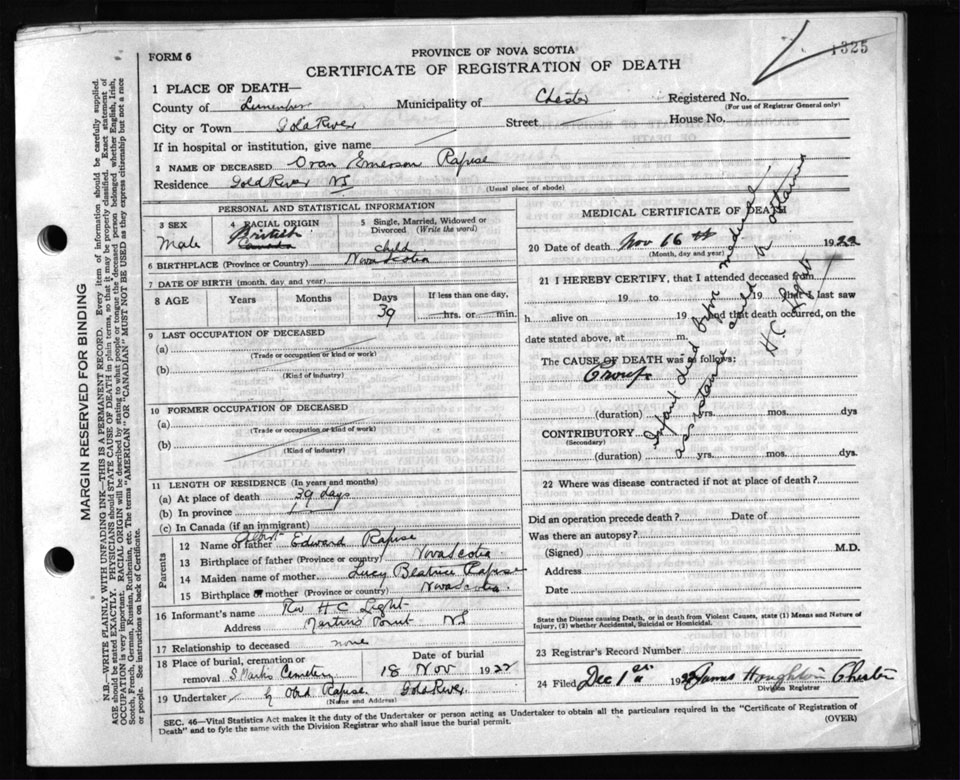 1325
FORM 6
PROVINCE OF NOVA SCOTIA
CERTIFICATE OF REGISTRATION OF DEATH
1 PLACE OF DEATH—
County of Lunenburg Municipality of Chester Registered No.
(For use of Registrar General only)
City or Town Gold River Street House No.
If in hospital or institution, give name
2 NAME OF DECEASED Oran Emerson Rafuse
Residence Gold River NS
(Usual place of abode)
PERSONAL AND STATISTICAL INFORMATION
3 SEX 4 RACIAL ORIGIN 5 Single, Married, Widowed or Divorced (Write the word)
Male British Canada Child
6 BIRTHPLACE (Province or Country) Nova Scotia
7 DATE OF BIRTH (month, day, and year)
8 AGE Years Months Days If less than one day,
39 hrs. or min.
9 LAST OCCUPATION OF DECEASED
(a)
(Trade or occupation or kind of work)
(b)
(Kind of industry)
10 FORMER OCCUPATION OF DECEASED
(a)
(Trade or occupation or kind of work)
(b)
(Kind of industry)
11 LENGTH OF RESIDENCE (In years and months)
(a) At place of death 39 days
(b) In province
(c) In Canada (if an immigrant)
Parents
12 Name of father Albert Edward Rafuse
13 Birthplace of father (Province or country) Nova Scotia
14 Maiden name of mother Lucy Beatrice Rafuse
15 Birthplace of mother (Province or country) Nova Scotia
16 Informant's name Rev H C Light
Address Martins Point NS
17 Relationship to deceased none
18 Place of burial, cremation or removal S. Marks Cemetery Date of burial 18 Nov 1922
19 Undertaker by Obed Rafuse Gold River
(Name and Address)
MEDICAL CERTIFICATE OF DEATH
20 Date of death Nov 16th 1922
(Month, day and year)
21 I HEREBY CERTIFY, that I attended deceased from
19 to 19 that I last saw
h alive on 19 and that death occurred, on the
date stated above, at m.
The CAUSE OF DEATH was as follows:
Croup
(duration) yrs. mos. dys
CONTRIBUTORY
(Secondary)
(duration) yrs. mos. dys.
Infant died before medical
assistance could be obtained
H.C. Light
22 Where was disease contracted if not at place of death?
Did an operation precede death? Date of
Was there an autopsy?
(Signed) M.D.
Address
Date
State the Disease causing Death, or in death from Violent Causes, state (1) Means and Nature of
Injury, (2) whether Accidental, Suicidal or Homicidal.
23 Registrar's Record Number
24 Filed Dec 1st 1922 James Houghton Chester
Division Registrar
SEC. 46—Vital Statistics Act makes it the duty of the Undertaker or person acting as Undertaker to obtain all the particulars required in the "Certificate of Registration of
Death" and to fyle the same with the Division Registrar who shall issue the burial permit.
(OVER)
MARGIN RESERVED FOR BINDING
N.B.—WRITE PLAINLY WITH UNFADING INK—THIS IS A PERMANENT RECORD. Every item of information should be carefully supplied.
AGE should be stated EXACTLY. PHYSICIANS should STATE CAUSE OF DEATH in plain terms, so that it may be properly classified. Exact statement of
OCCUPATION is very important. RACIAL ORIGIN will be described by stating to what people or tongue the deceased person belonged whether English, Irish,
Scotch, French, German, Russian, Ruthenian, etc. The terms "AMERICAN" OR "CANADIAN" MUST NOT BE USED as they express citizenship but not a race
or people. See instructions on back of Certificate.